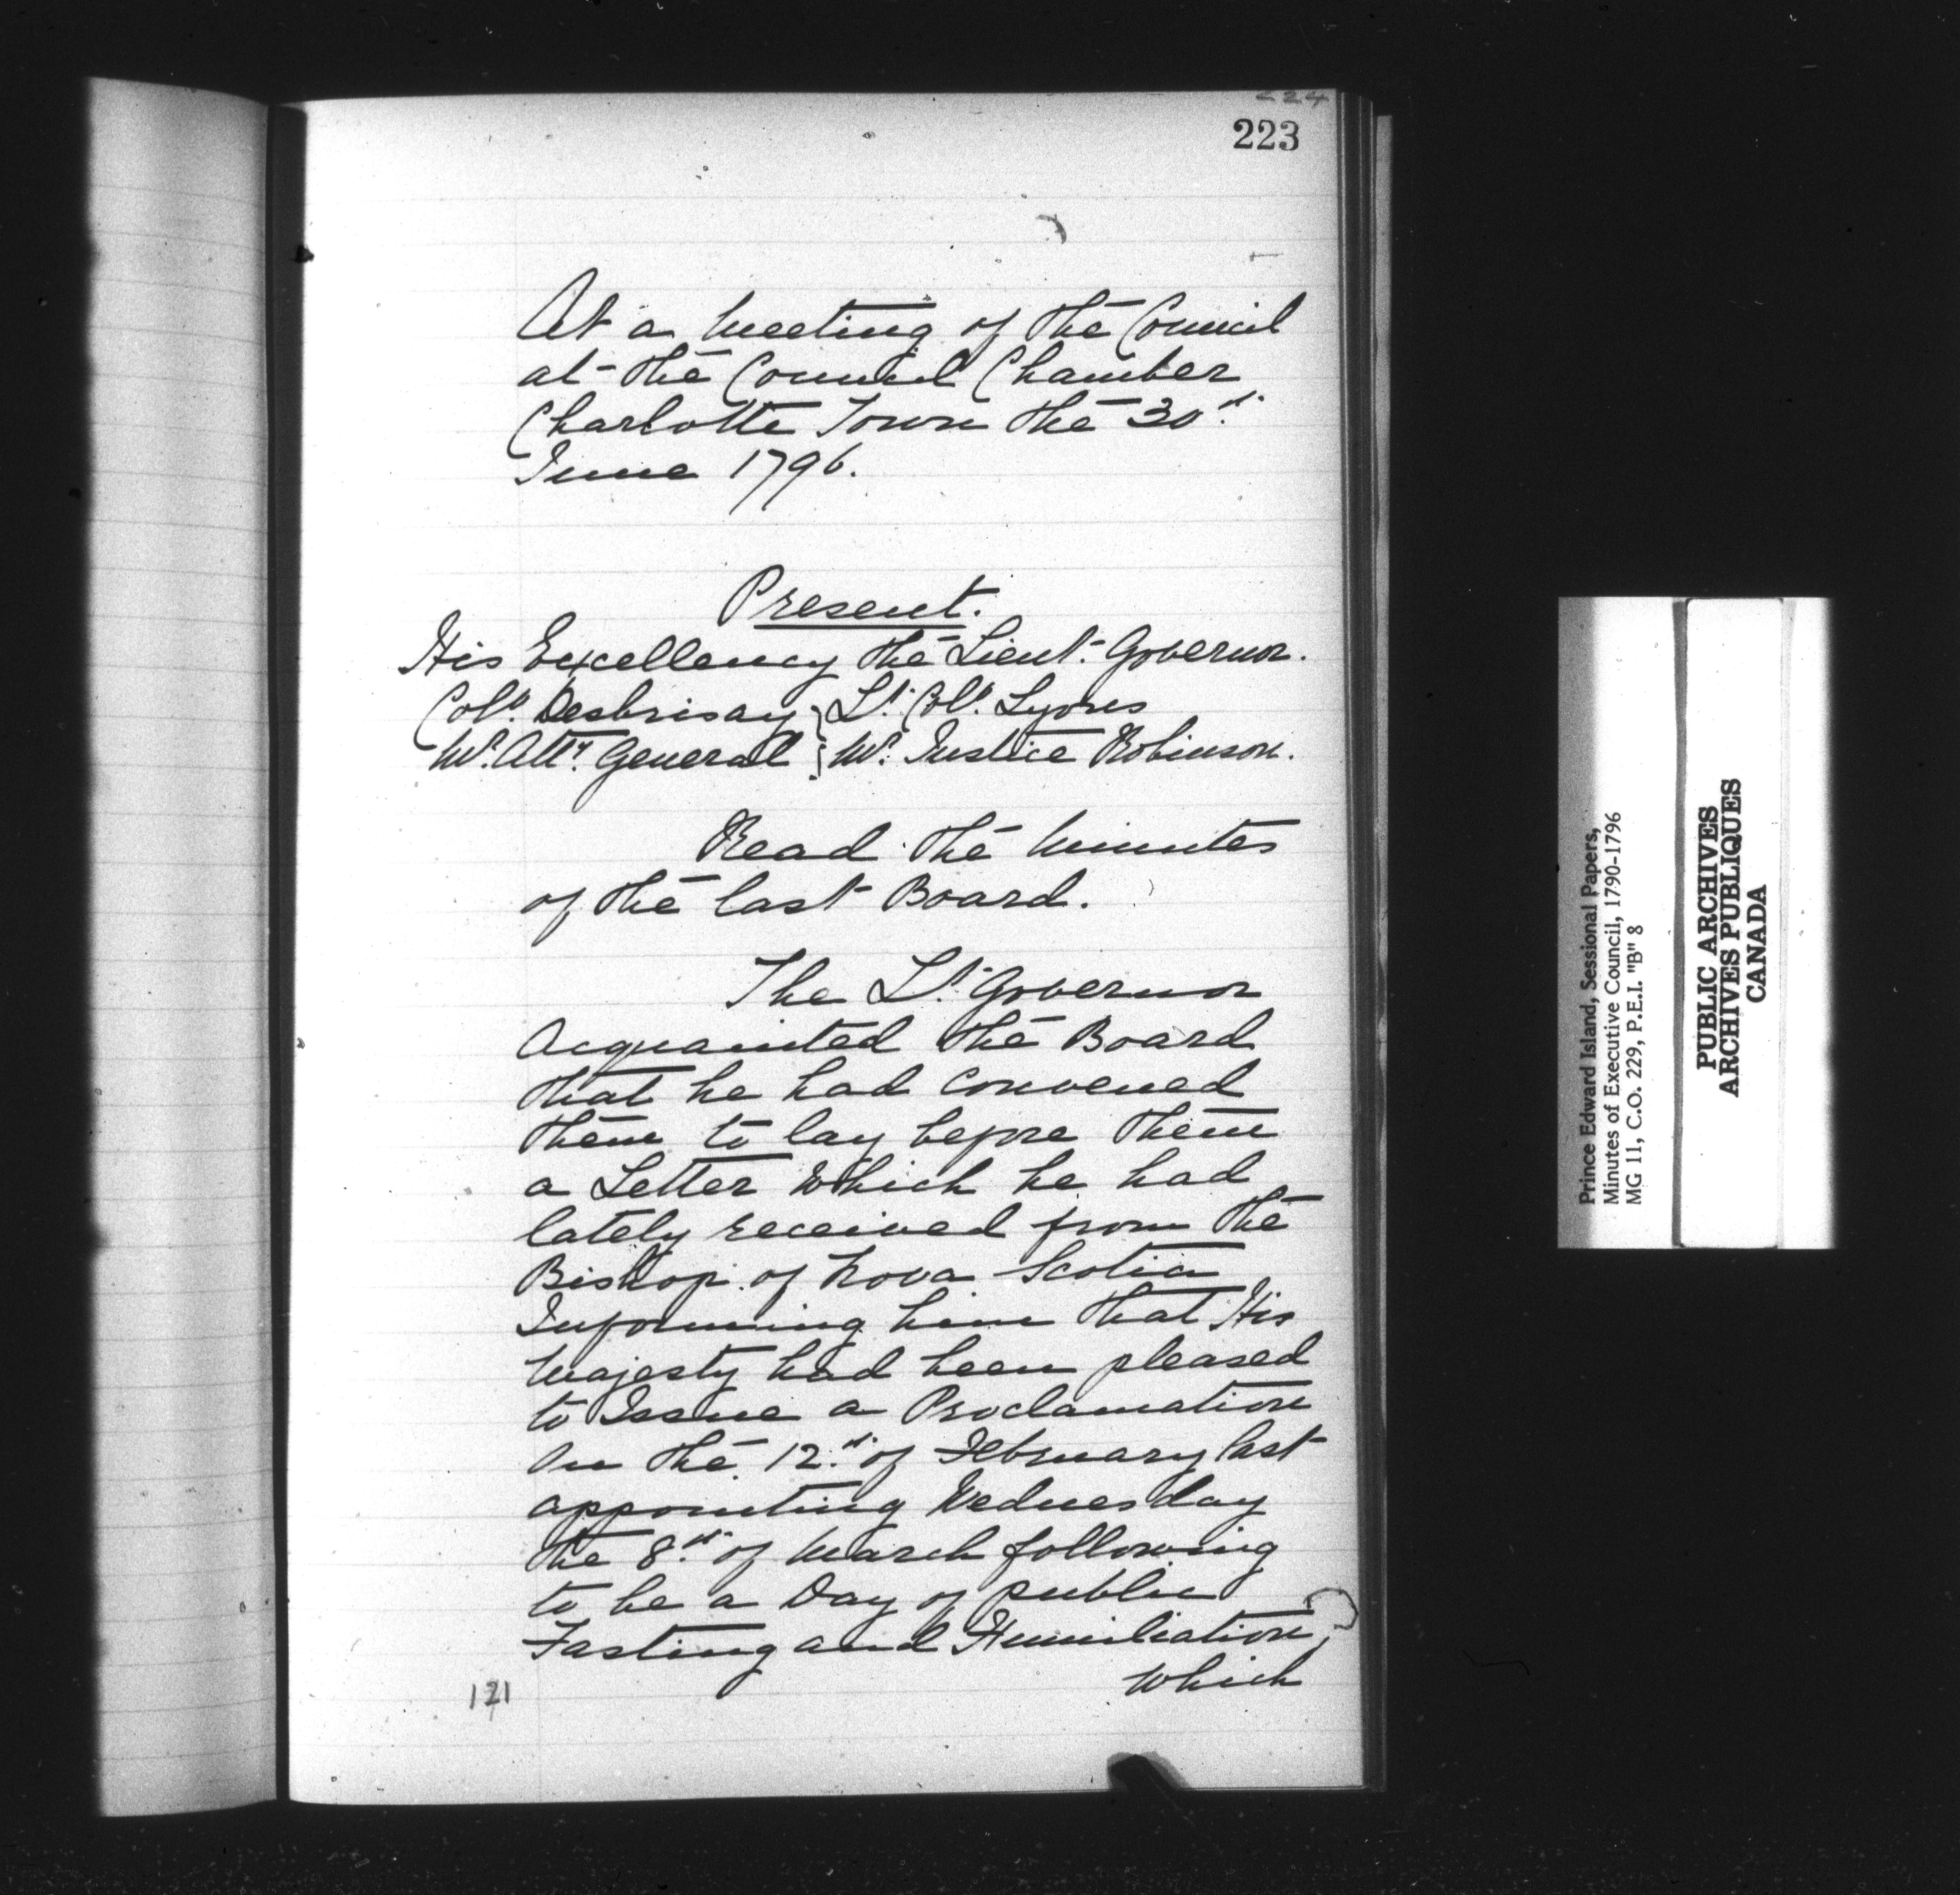 224
223
At a Meeting of the Council
at the Council Chamber
Charlotte Town the 30th
June 1796.
Present.
His Excellency the Lieut. Governor.
Col. Desbrisay } Lt. Col. Lyons
Mr. Atty. General } Mr. Justice Robinson.
Read the Minutes
of the last Board.
The Lt. Governor
Acquainted the Board
that he had convened
them to lay before them
a Letter Which he had
lately received from the
Bishop of Nova Scotia
Informing him that His
Majesty had been pleased
to Issue a Proclamation
On the 12th of February last
appointing Wednesday
the 8th of March following
to be a Day of public
Fasting and Humiliation,
Which
121
Prince Edward Island, Sessional Papers,
Minutes of Executive Council, 1790-1796
MG 11, C.O. 229, P.E.I. "B" 8
PUBLIC ARCHIVES
ARCHIVES PUBLIQUES
CANADA